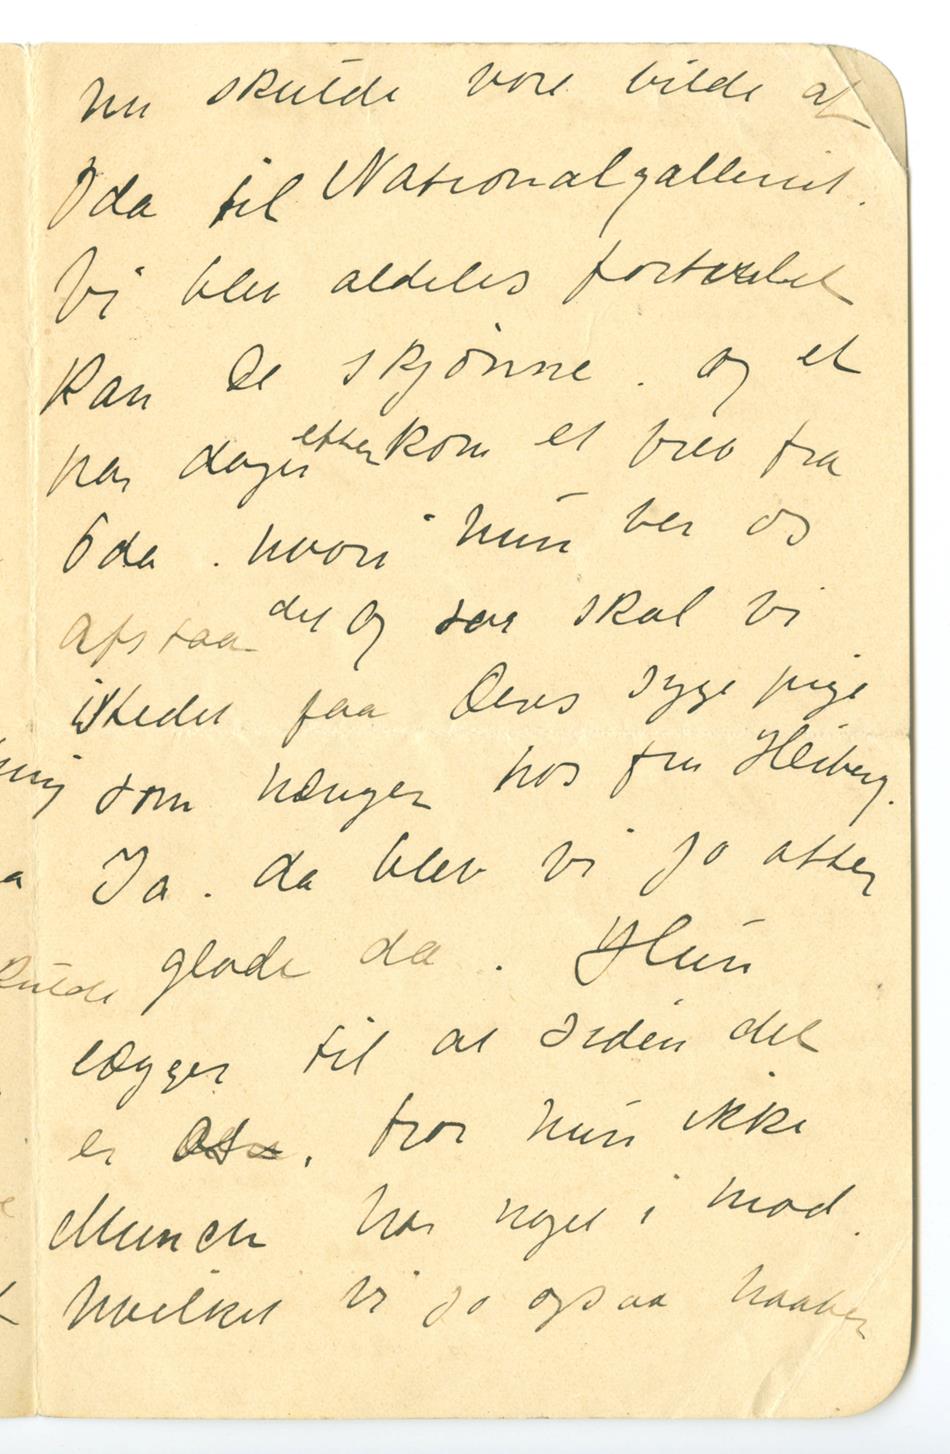 nu skulde vort bilde af
Oda til Nationalgalleriet.
Vi blev aldeles
kan De skjønne. og et
par dager efter kom et brev fra
Oda. hvori hun ber os
afstaa det og saa skal vi
istedet faa Deres syge pige
som hænger hos fru Heiberg.
Ja. da blev vi jo atter
glade da. Hun
lægger til at siden det
er, tror hun ikke
Munch har noget i mod.
hvilket vi jo ogsaa haaber